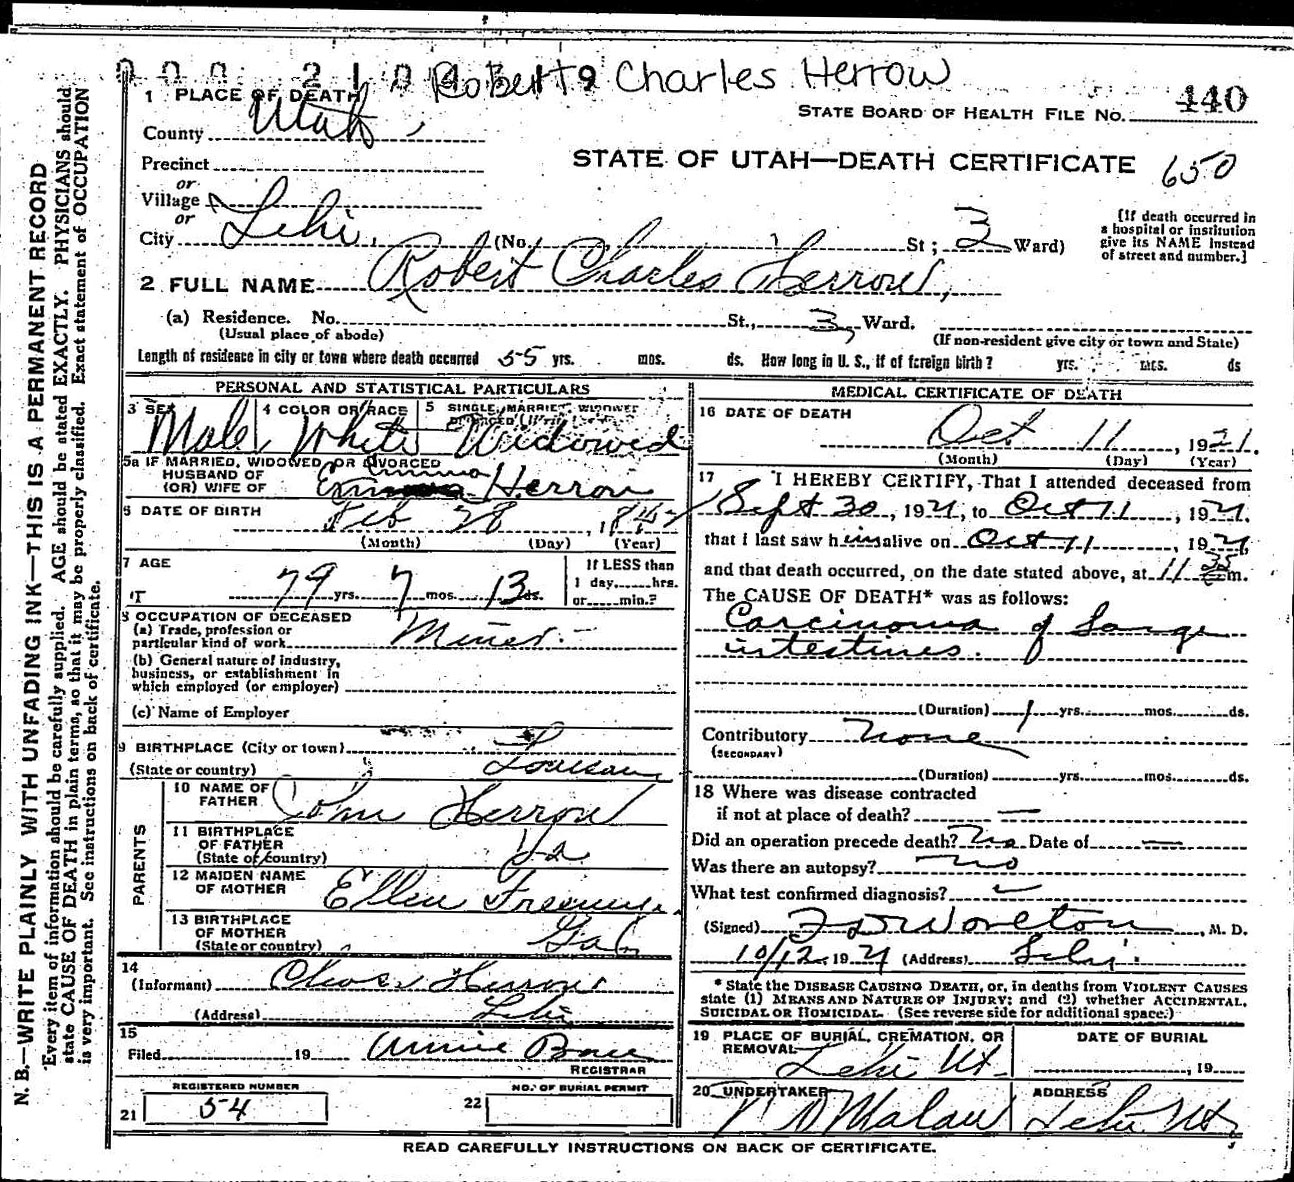 Robert Charles Herrow
1 PLACE OF DEATH
STATE BOARD OF HEALTH FILE NO. 440
County Utah
STATE OF UTAH—DEATH CERTIFICATE 650
Precinct
or
Village
or
City Lehi, (No. St; 3 Ward)
[If death occurred in
a hospital or institution
give its NAME instead
of street and number.]
2 FULL NAME Robert Charles Herrow,
(a) Residence. No. St., 3 Ward.
(Usual place of abode) (If non-resident give city or town and State)
Length of residence in city or town where death occurred 55 yrs. mos. ds. How long in U. S., if of foreign birth? yrs. mos. ds
PERSONAL AND STATISTICAL PARTICULARS
3 SEX Male
4 COLOR OR RACE White
5 SINGLE, MARRIED, WIDOWED
Widowed
5a IF MARRIED, WIDOWED, OR DIVORCED
HUSBAND OF
(OR) WIFE OF Emma Herrow
6 DATE OF BIRTH Feb 28, 18
(Month) (Day) (Year)
7 AGE 79 yrs. 7 mos. 13 ds.
If LESS than
1 day, hrs.
or min.?
8 OCCUPATION OF DECEASED
(a) Trade, profession or
particular kind of work Miner
(b) General nature of industry,
business, or establishment in
which employed (or employer)
(c) Name of Employer
9 BIRTHPLACE (City or town)
(State or country)
PARENTS
10 NAME OF
FATHER John Herrow
11 BIRTHPLACE
OF FATHER
(State or country)
12 MAIDEN NAME
OF MOTHER Ellen
13 BIRTHPLACE
OF MOTHER
(State or country)
14
(Informant) Chas Herrow
(Address) Lehi
15
Filed 19 Annie
REGISTRAR
REGISTERED NUMBER
21 54
NO. OF BURIAL PERMIT
22
MEDICAL CERTIFICATE OF DEATH
16 DATE OF DEATH
Oct 11, 1921.
(Month) (Day) (Year)
17 I HEREBY CERTIFY, That I attended deceased from
Sept 30, 1921, to Oct 11, 1921.
that I last saw him alive on Oct 11, 1921,
and that death occurred, on the date stated above, at 11 35 m.
The CAUSE OF DEATH* was as follows:
Carcinoma of Large
intestines.
(Duration) 1 yrs. mos. ds.
Contributory none
(SECONDARY)
(Duration) yrs. mos. ds.
18 Where was disease contracted
if not at place of death? —
Did an operation precede death? No Date of —
Was there an autopsy? no
What test confirmed diagnosis?
(Signed) Worlton, M. D.
10/12, 1921 (Address) Lehi
* State the DISEASE CAUSING DEATH, or, in deaths from VIOLENT CAUSES
state (1) MEANS AND NATURE OF INJURY; and (2) whether ACCIDENTAL,
SUICIDAL OR HOMICIDAL. (See reverse side for additional space.)
19 PLACE OF BURIAL, CREMATION, OR
REMOVAL Lehi Ut.
DATE OF BURIAL
, 19
20 UNDERTAKER
ADDRESS
Lehi Ut,
READ CAREFULLY INSTRUCTIONS ON BACK OF CERTIFICATE.
N. B.—WRITE PLAINLY WITH UNFADING INK—THIS IS A PERMANENT RECORD
Every item of information should be carefully supplied. AGE should be stated EXACTLY. PHYSICIANS should
state CAUSE OF DEATH in plain terms, so that it may be properly classified. Exact statement of OCCUPATION
is very important. See instructions on back of certificate.